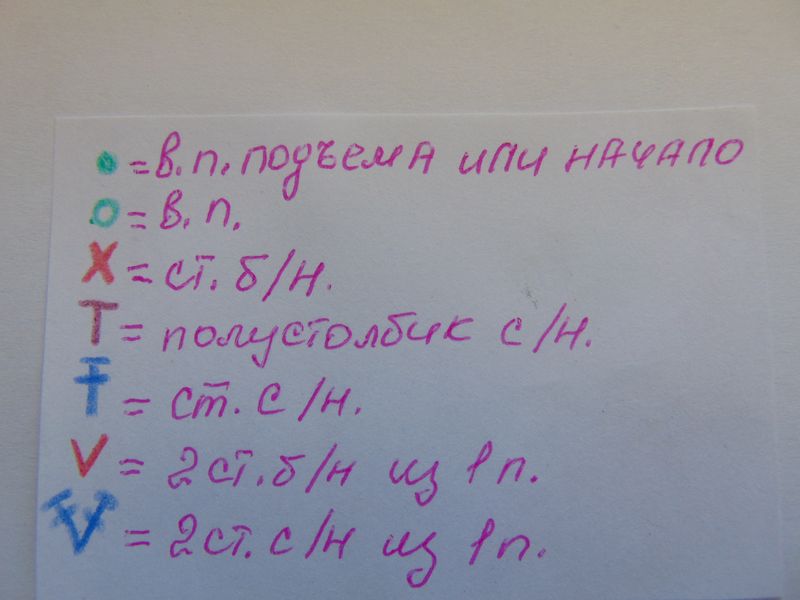 • = в.п. подъема или начало
o = в.п.
X = ст. б/н.
T = полустолбик с/н.
Ŧ = ст. с/н.
V = 2ст. б/н из 1 п.
V = 2ст. с/н из 1 п.